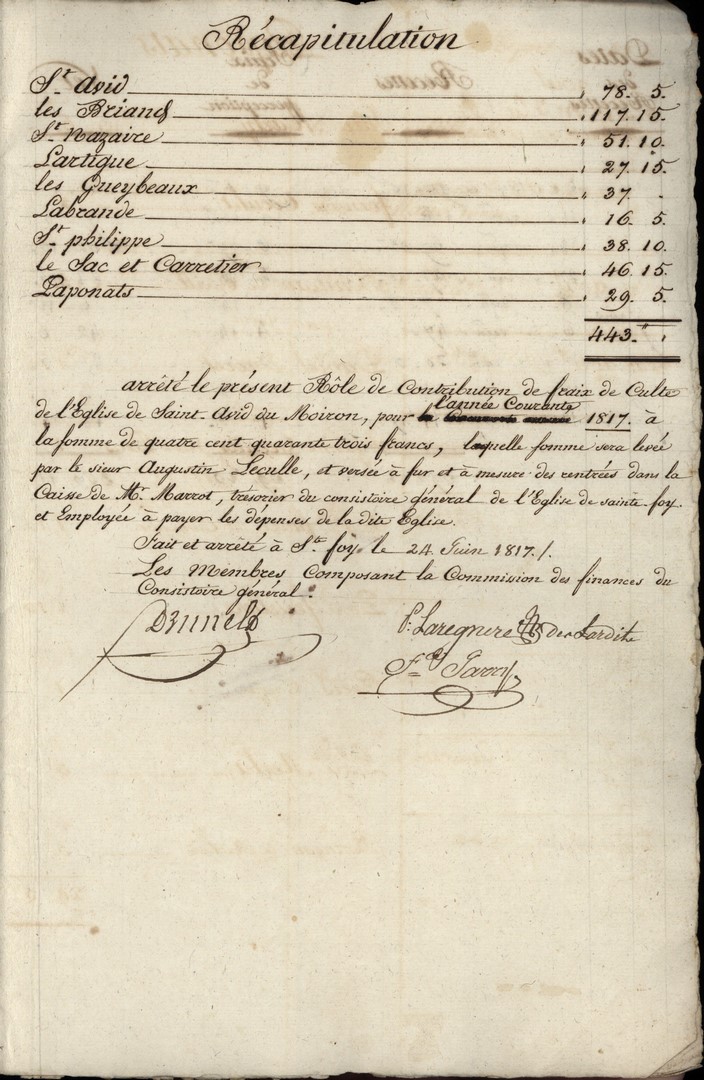 Récapitulation
St. Avid 78. 5.
les Briands 117. 15.
St. Nazaire 51. 10.
Lartigue 27. 15.
les Gueybeaux 37. .
Labrande 16. 5.
St. philippe 38. 10.
le Sac et Carretier 46. 15.
Paponats 29. 5.
443. " .
arrêté le présent Rôle de Contribution de fraix de Culte
l'année Courante
de l'Eglise de Saint Avid du Moiron, pour 1817. à
la somme de quatre cent quarante trois francs, laquelle somme sera levé
par le sieur Augustin Leculle, et versée à fur et à mesure des rentrées dans la
Caisse de Mr. Marrot, trésorier du consistoire général de l'Eglise de sainte foy.
et Employée à payer les dépenses de la dite Eglise.
Fait et arrêté à Ste. foy le 24 Juin 1817./.
Les Membres Composant la Commission des finances du
Consistoire général.
P. Laregnere